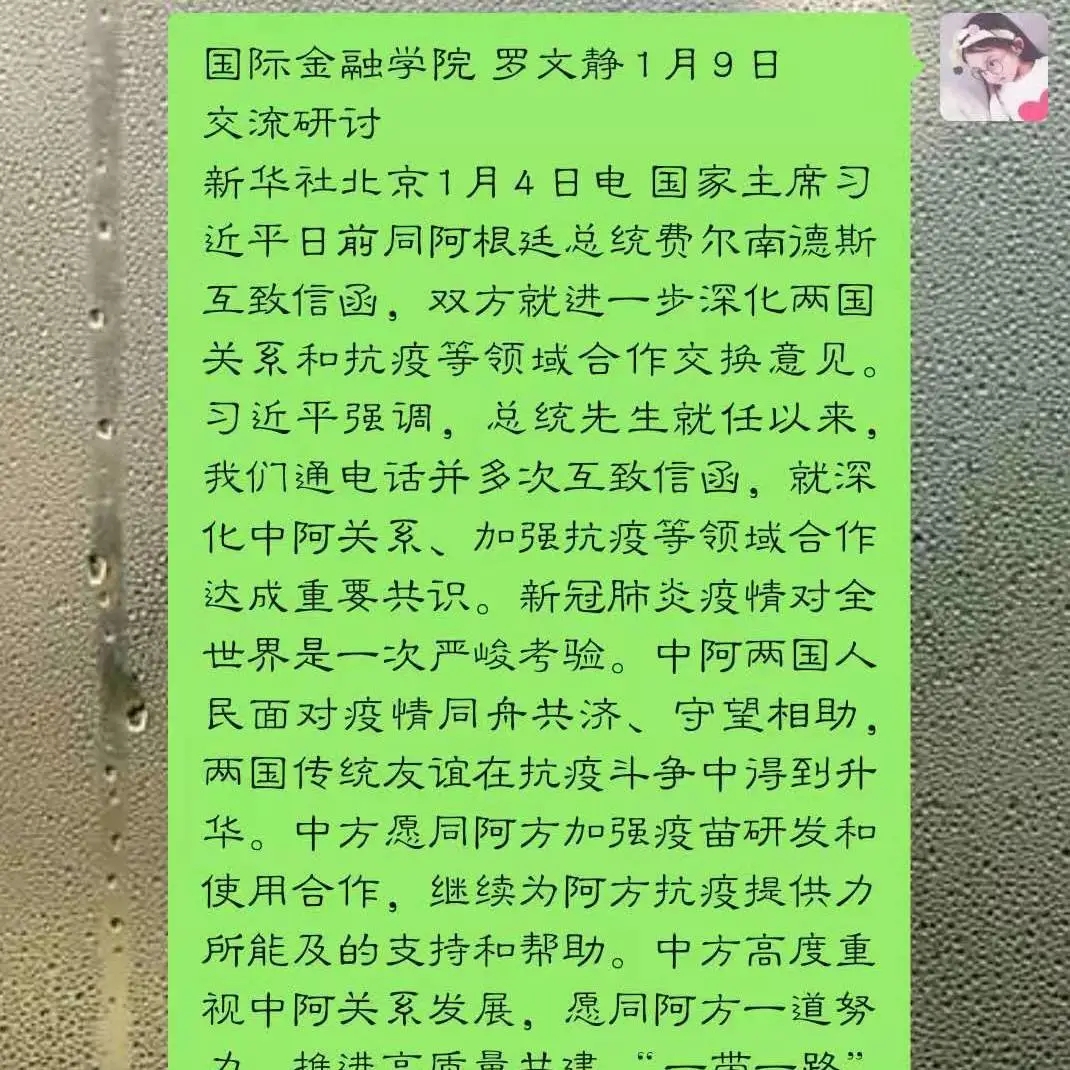 国际金融学院 罗文静1月9日
交流研讨
新华社北京1月4日电 国家主席习
近平日前同阿根廷总统费尔南德斯
互致信函，双方就进一步深化两国
关系和抗疫等领域合作交换意见。
习近平强调，总统先生就任以来，
我们通电话并多次互致信函，就深
化中阿关系、加强抗疫等领域合作
达成重要共识。新冠肺炎疫情对全
世界是一次严峻考验。中阿两国人
民面对疫情同舟共济、守望相助，
两国传统友谊在抗疫斗争中得到升
华。中方愿同阿方加强疫苗研发和
使用合作，继续为阿方抗疫提供力
所能及的支持和帮助。中方高度重
视中阿关系发展，愿同阿方一道努
力，推进高质量共建“一带一路”